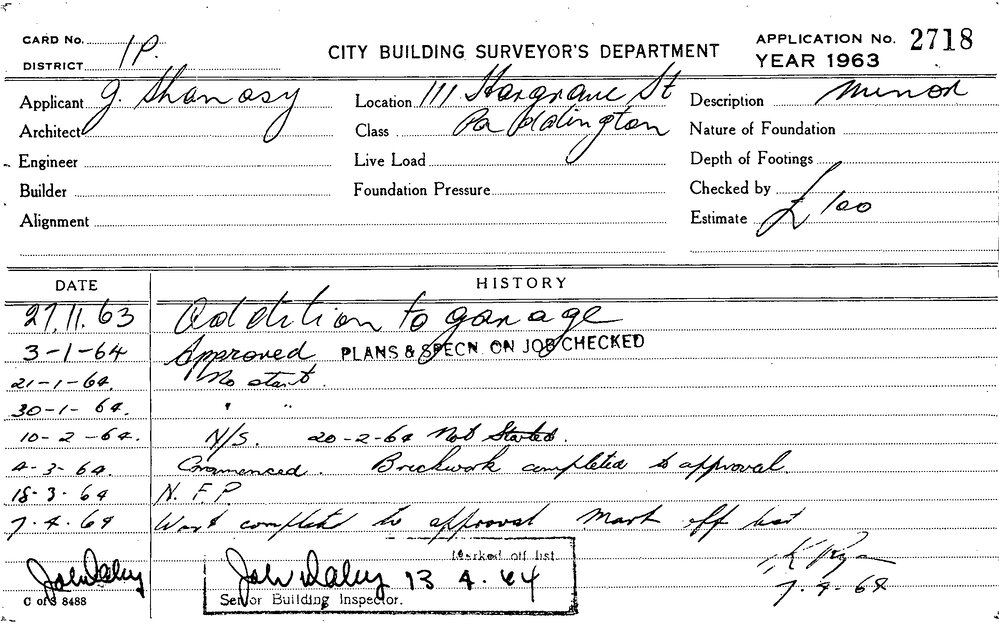 CARD No. 1P.
DISTRICT
CITY BUILDING SURVEYOR'S DEPARTMENT
APPLICATION No. 2718
YEAR 1963
Applicant J. Shanasy
Architect
Engineer
Builder
Alignment
Location 111 Hargrave St
Class Paddington
Live Load
Foundation Pressure
Description Minor
Nature of Foundation
Depth of Footings
Checked by
Estimate £100
DATE HISTORY
27.11.63 Addition to garage
3-1-64 Approved PLANS & SPECN. ON JOB CHECKED
21-1-64. No start.
30-1-64. " "
10-2-64. N/S. 20-2-64 Not Started.
4-3-64. Commenced. Brickwork completed to approval.
18-3-64 N.F.P.
7.4.64 Work complete to approval Mark off list
K Ryan
7-4-64
John Daley
C of S 8488
Marked off list
John Daley 13 4.64
Senior Building Inspector.